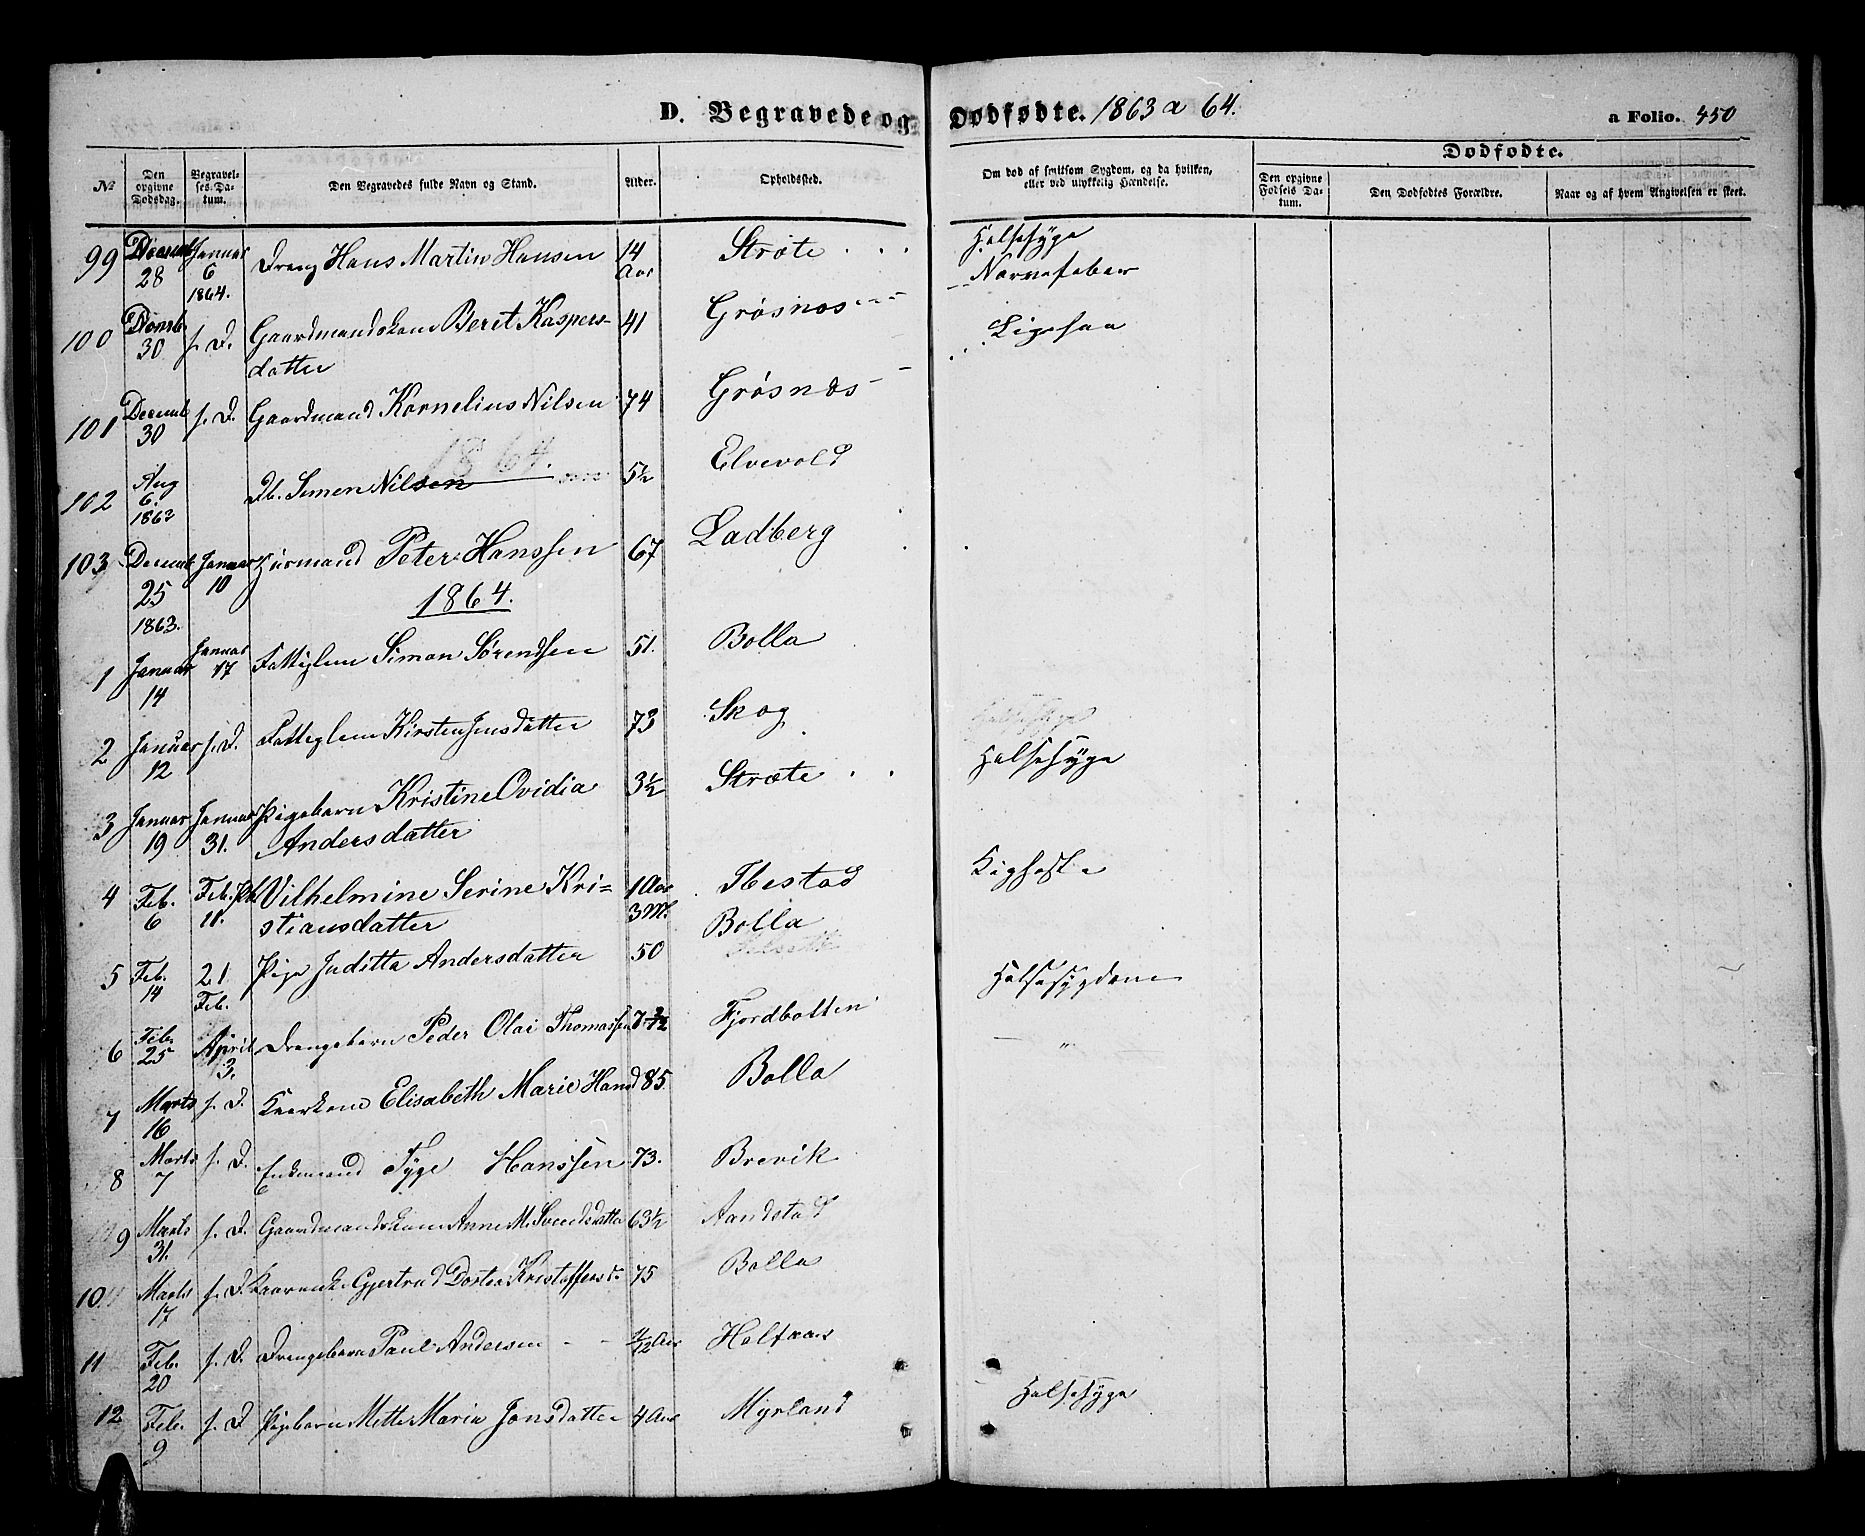 D. Begravede og Dødfødte. 1863 a 64.
a Folio. 450
Dødfødte.
№
Den opgivne Dødsdag.
Begravelses-Datum.
Den Begravedes fulde Navn og Stand.
Alder.
Opholdssted.
Om død af smitsom Sygdom, og da hvilken, eller ved ulykkelig Hændelse.
Den opgivne Fødsels Datum.
Den Dødfødtes Forældre.
Naar og af hvem Angivelsen er skeet.
99 28 Januar 6 1864. Dreng Hans Martin Hansen 14 Aar Stræte Halsesyge
Nervefeber
100 30 s. D. Gaardmandskone Beret Kaspers- 41 Grøsnæs
datter
101 Decemb 30 s. D. Gaardmand Kornelius Nilsen 74 Grøsnæs
1864.
102 Aug 6. 1863 Db. Simen Nilsen 5½ Elvevold
103 Decemb 25 1863. Januar 10 Huusmand Peter Hanssen 67 Ladberg
1864.
1 Januar 14 Januar 17 Fattiglem Simon Sørendsen 51. Bolla
2 Januar 12 s. D. Fattiglem Kirsten Jensdatter 73 Skog
3 Januar 19 Januar 31. Pigebarn Kristine Ovidia 3½ Stræte Halsesyge
Andersdatter
4 Feb. 6 Feb. 11. Pb. Vilhelmine Serine Kri= 1 Aar 3 M. Ibestad Kighoste
stiansdatter
5 Feb. 14 21 Feb. Pige Juditta Andersdatter 50 Bolla
6 Feb. 25 April 3. Drengebarn Peder Olai Thomassen Fjordbotten Halsesygdom
7 Marts 16 s. D. Elisabeth Marie Hansd 85. Bolla
8 Marts 7 s. D. Enkemand Tyge Hanssen 73. Brevik
9 Marts 31. s. D. Gaardmandskone Anne M. Svendsdatter 63½ Aandstad
10 Marts 17 s. D. Gjertrud Dortea Kristoffersd. 75 Bolla
11 Feb. 20 s. D. Drengebarn Paul Andersen Aar
12 Feb. 9 s. D Pigebarn Mette Maria Jonsdatter 4 Aar Myrland Halsesyge